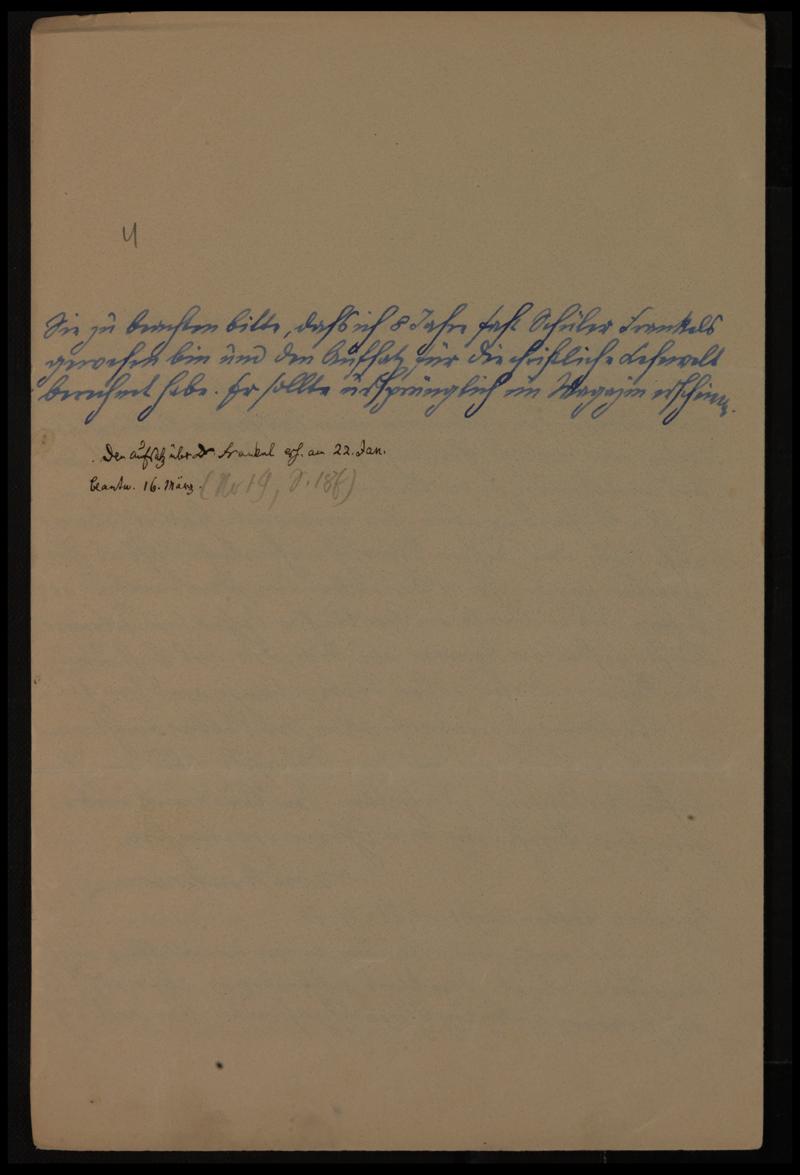 4
Sie zu beachten bitte, dass ich 8 Jahre fast Schüler Frankels
gewesen bin und den Aufsatz für die christliche Lesewelt
berechnet habe. Er sollte ursprünglich im Magazin erscheinen.
Den Aufsatz über Frankel erh. am 22. Jan.
beantw. 16. März. (No 19, S. 186)